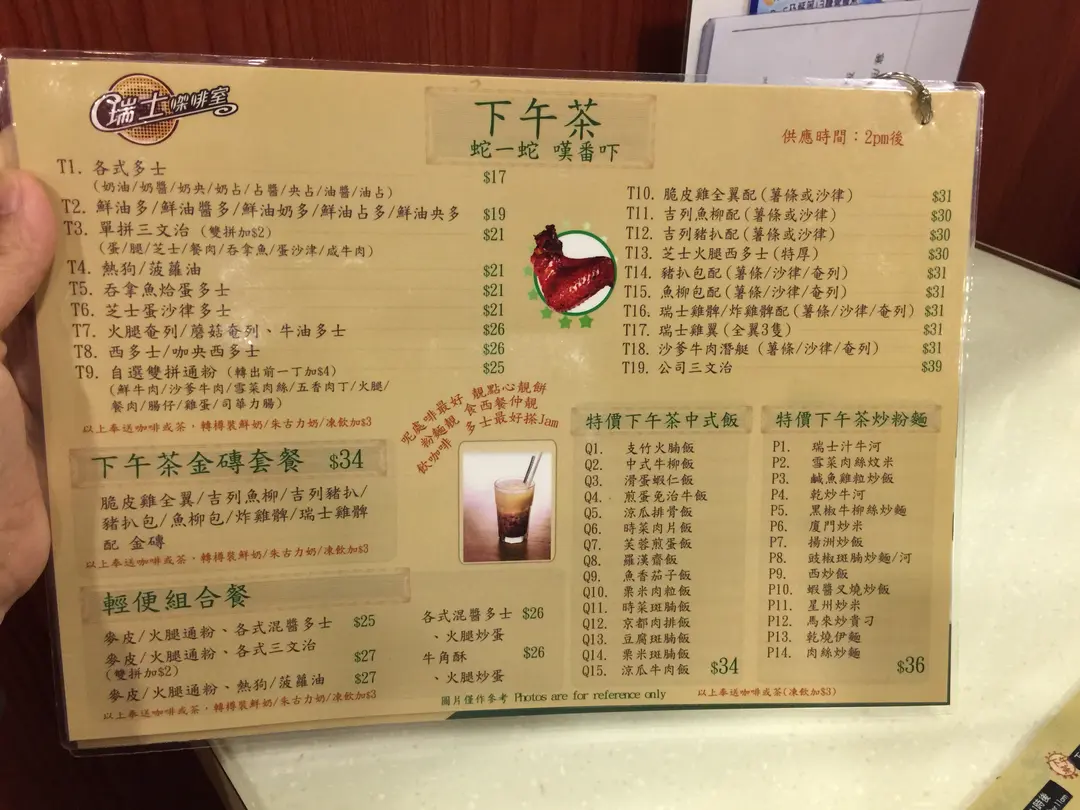 瑞士咖啡室
下午茶
蛇一蛇 嘆番吓
供應時間：2pm後
T1. 各式多士 $17
(奶油/奶醬/奶央/奶占/占醬/央占/油醬/油占)
T2. 鮮油多/鮮油醬多/鮮油奶多/鮮油占多/鮮油央多 $19
T3. 單拼三文治 (雙拼加$2) $21
(蛋/腿/芝士/餐肉/吞拿魚/蛋沙津/咸牛肉)
T4. 熱狗/菠蘿油 $21
T5. 吞拿魚烚蛋多士 $21
T6. 芝士蛋沙律多士 $21
T7. 火腿奄列/蘑菇奄列、牛油多士 $26
T8. 西多士/咖央西多士 $26
T9. 自選雙拼通粉 (轉出前一丁加$4) $25
(鮮牛肉/沙爹牛肉/雪菜肉絲/五香肉丁/火腿/
餐肉/腸仔/雞蛋/司華力腸)
以上奉送咖啡或茶，轉樽裝鮮奶/朱古力奶/凍飲加$3
T10. 脆皮雞全翼配(薯條或沙律) $31
T11. 吉列魚柳配(薯條或沙律) $30
T12. 吉列豬扒配(薯條或沙律) $30
T13. 芝士火腿西多士(特厚) $30
T14. 豬扒包配(薯條/沙律/奄列) $31
T15. 魚柳包配(薯條/沙律/奄列) $31
T16. 瑞士雞髀/炸雞髀配(薯條/沙律/奄列) $31
T17. 瑞士雞翼(全翼3隻) $31
T18. 沙爹牛肉潛艇 (薯條/沙律/奄列) $31
T19. 公司三文治 $39
下午茶金磚套餐 $34
脆皮雞全翼/吉列魚柳/吉列豬扒/
豬扒包/魚柳包/炸雞髀/瑞士雞髀
配 金磚
以上奉送咖啡或茶，轉樽裝鮮奶/朱古力奶/凍飲加$3
呢處咖啡最好 靚點心靚餅
粉麵靚 食西餐仲靚
飲咖啡 多士最好搽Jam
輕便組合餐
麥皮/火腿通粉、各式混醬多士 $25
麥皮/火腿通粉、各式三文治 $27
(雙拼加$2)
麥皮/火腿通粉、熱狗/菠蘿油 $27
以上奉送咖啡或茶，轉樽裝鮮奶/朱古力奶/凍飲加$3
各式混醬多士 $26
、火腿炒蛋
牛角酥 $26
、火腿炒蛋
圖片僅作參考 Photos are for reference only
特價下午茶中式飯
Q1. 支竹火腩飯
Q2. 中式牛柳飯
Q3. 滑蛋蝦仁飯
Q4. 煎蛋免治牛飯
Q5. 涼瓜排骨飯
Q6. 時菜肉片飯
Q7. 芙蓉煎蛋飯
Q8. 羅漢齋飯
Q9. 魚香茄子飯
Q10. 粟米肉粒飯
Q11. 時菜斑腩飯
Q12. 京都肉排飯
Q13. 豆腐斑腩飯
Q14. 粟米斑腩飯
Q15. 涼瓜牛肉飯 $34
特價下午茶炒粉麵
P1. 瑞士汁牛河
P2. 雪菜肉絲炆米
P3. 鹹魚雞粒炒飯
P4. 乾炒牛河
P5. 黑椒牛柳絲炒麵
P6. 廈門炒米
P7. 揚洲炒飯
P8. 豉椒斑腩炒麵/河
P9. 西炒飯
P10. 蝦醬叉燒炒飯
P11. 星州炒米
P12. 馬來炒貴刁
P13. 乾燒伊麵
P14. 肉絲炒麵 $36
以上奉送咖啡或茶(凍飲加$3)